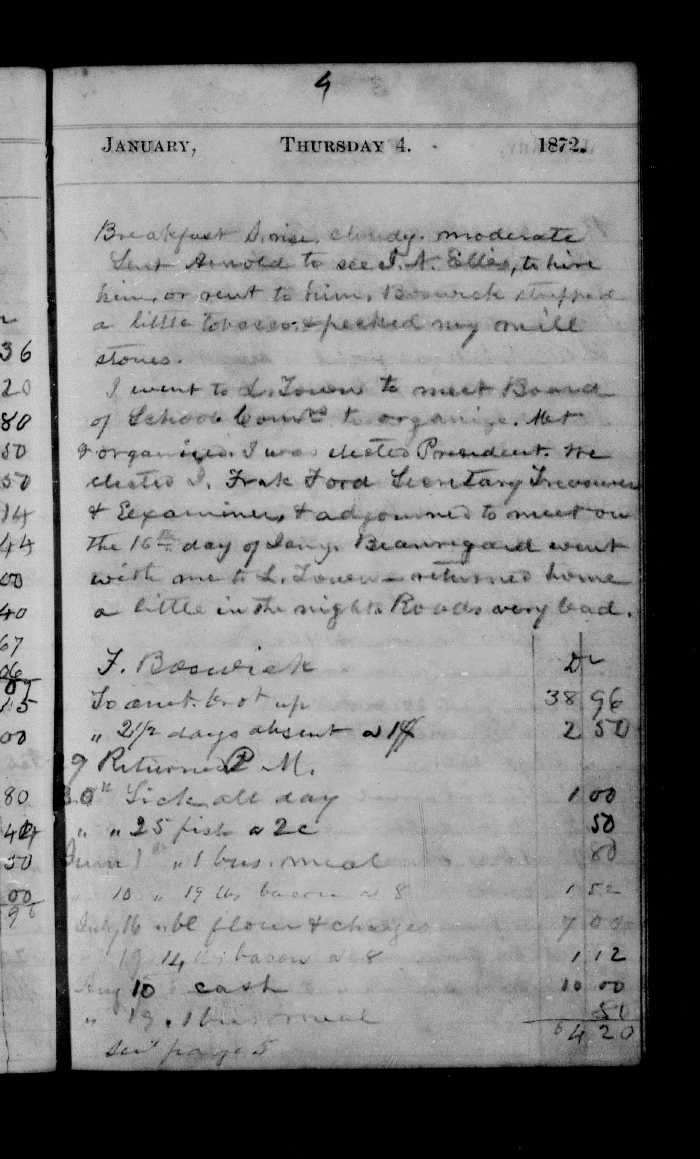 4
JANUARY, THURSDAY 4. 1872.
Breakfast S.rise. cloudy. moderate
Sent Arnold to see I. N. Elles, to hire
him, or rent to him. Boswick stripped
a little tobacco. & pecked my mill
stones.
I went to L. Town to meet Board
of School Comrs to organize. Met
& organized. I was elected President. We
elected I. Frak Ford Secretary Treasurer
& Examiner, & adjourned to meet on
the 16th day of Jany. Beauregard went
with me to L. Town - returned home
a little in the night. Roads very bad.
F. Boswick Dr
To amt. brot up 38 96
" 2 1/2 days absent a 1$ 2 50
9 Returned P M.
30th Sick all day 1 00
" " 25 fish a 2c 50
June 1st " 1 bus. meal 80
" 10 " 19 lbs bacon a 8 1 52
July 16 " bl flour & charges 7 00
" 19 14 lbs bacon a 8 1 12
Aug 10 cash 10 00
" 19 " 1 bus meal 80
64 20
see page 5
36
20
80
50
50
14
44
00
40
67
06
15
00
80
44
50
00
9